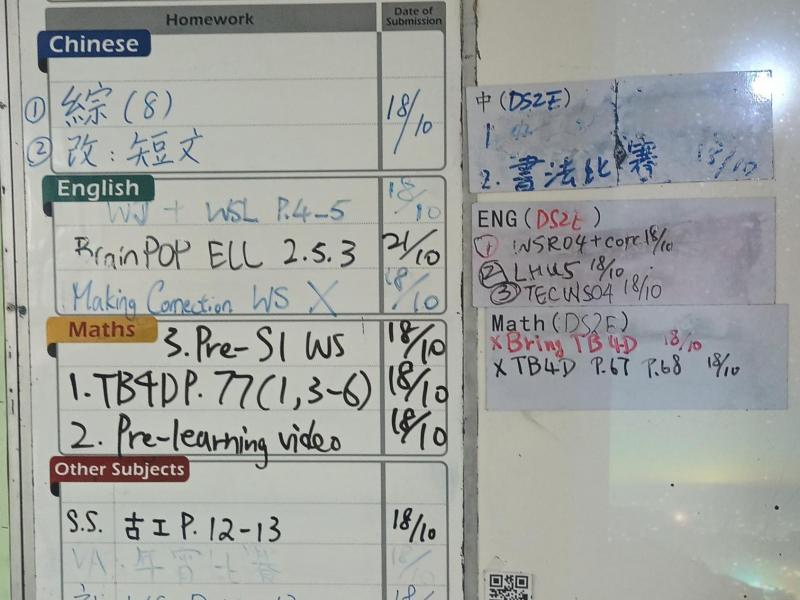 Homework
Date of Submission
Chinese
① 綜(8) 18/10
② 改：短文
English
WS + WSL P.4-5 18/10
BrainPOP ELL 2.5.3 21/10
Making Connection WS X 18/10
Maths
3. Pre-S1 WS 18/10
1. TB4D P. 77(1, 3-6) 18/10
2. Pre-learning video 18/10
Other Subjects
S.S. 古工 P. 12-13 18/10
VA 年宵比賽
中 (DS2E)
1
2. 書法比賽 18/10
ENG (DS2E)
① WSR04 + corr. 18/10
② LHU5 18/10
③ TECWS04 18/10
Math (DS2E)
x Bring TB 4D 18/10
x TB4D P.67 P.68 18/10